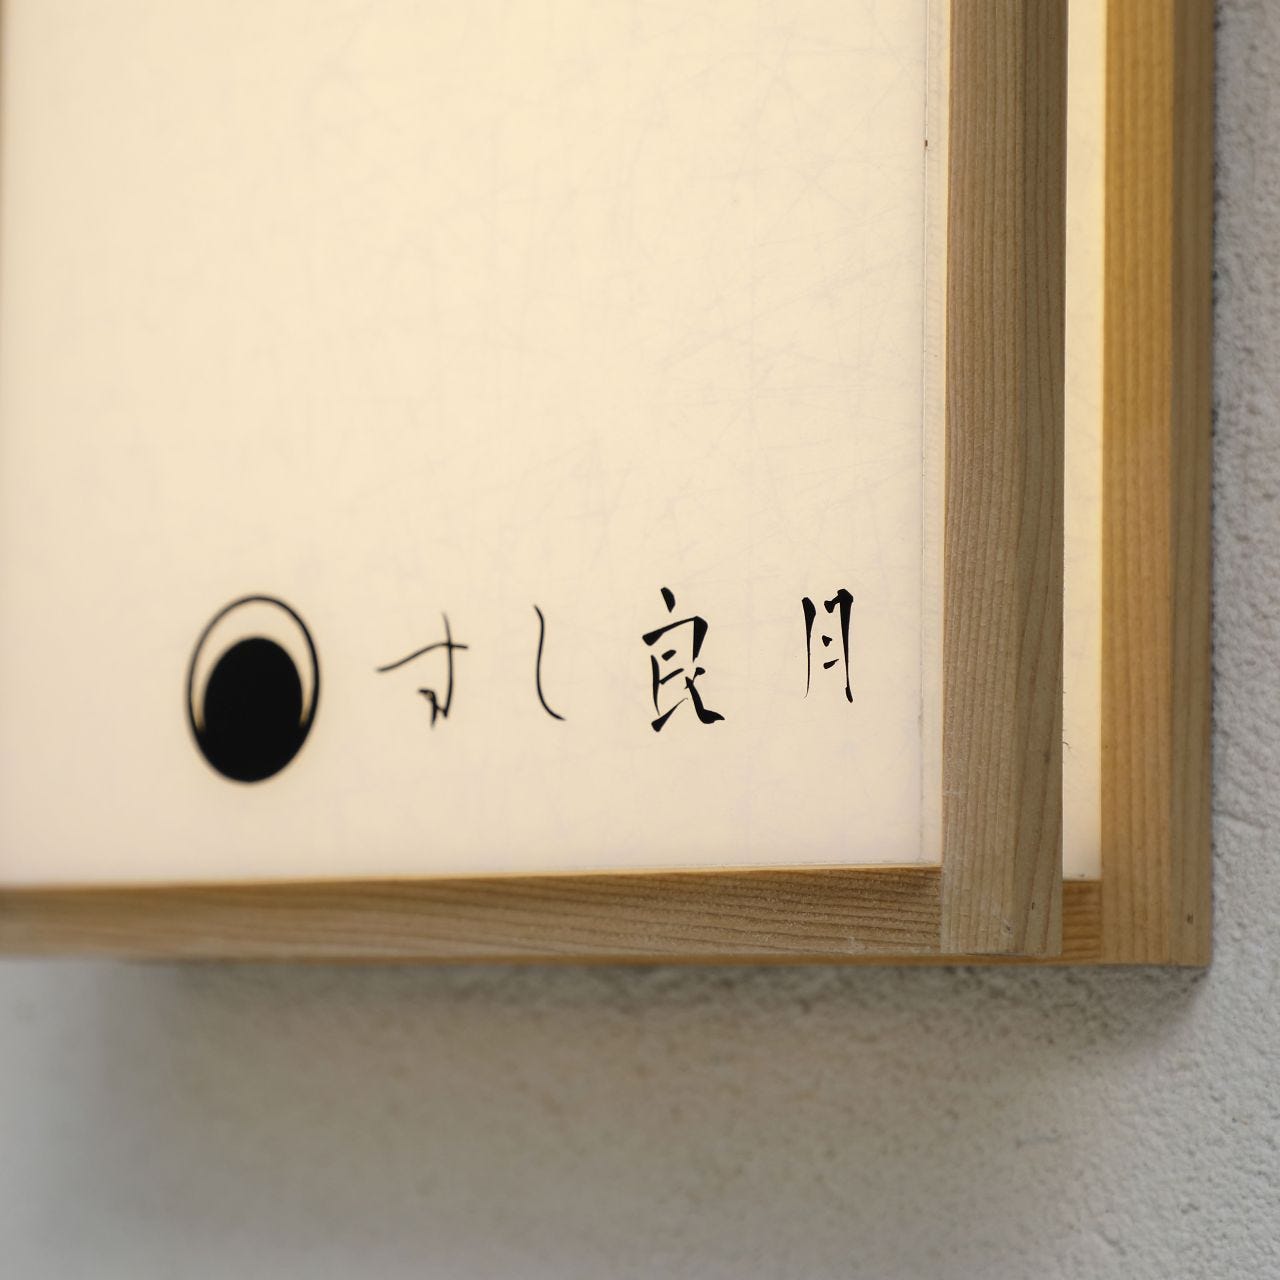 すし良月